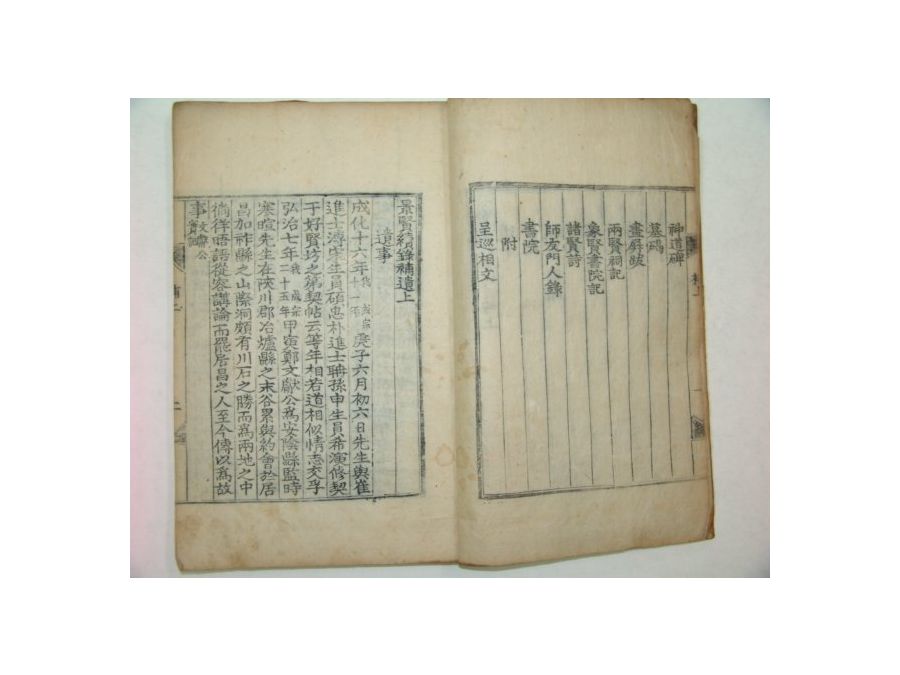 神道碑
墓碣
畫屏跋
兩賢祠記
象賢書院記
諸賢詩
師友門人錄
書院
附
呈巡相文
景賢續錄補遺上
遺事
成化十六年我成宗十一年庚子六月初六日先生與崔
進士溥宋生員碩忠朴進士聃孫申生員希演修契
于好賢坊之第契帖云等年相若道相似情志交孚
弘治七年我成宗二十五年甲寅鄭文獻公爲安陰縣監時
寒暄先生在陜川郡冶爐縣之末谷累與約會於居
昌加祚縣之山際洞頗有川石之勝而爲兩地之中
徜徉晤語從容講論而罷居昌之人至今傳以爲故
事文獻公實記